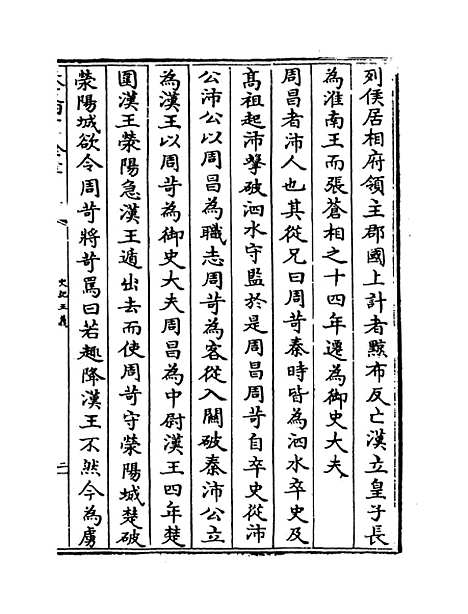 列侯居相府領主郡國上計者黥布反亡漢立皇子長
為淮南王而張蒼相之十四年遷為御史大夫
周昌者沛人也其從兄曰周苛秦時皆為泗水卒史及
髙祖起沛擊破泗水守監於是周昌周苛自卒史從沛
公沛公以周昌為職志周苛為客從入關破秦沛公立
為漢王以周苛為御史大夫周昌為中尉漢王四年楚
圍漢王滎陽急漢王遁出去而使周苛守滎陽城楚破
滎陽城欲令周苛將苛罵曰若趣降漢王不然今為虜
史記正義
二